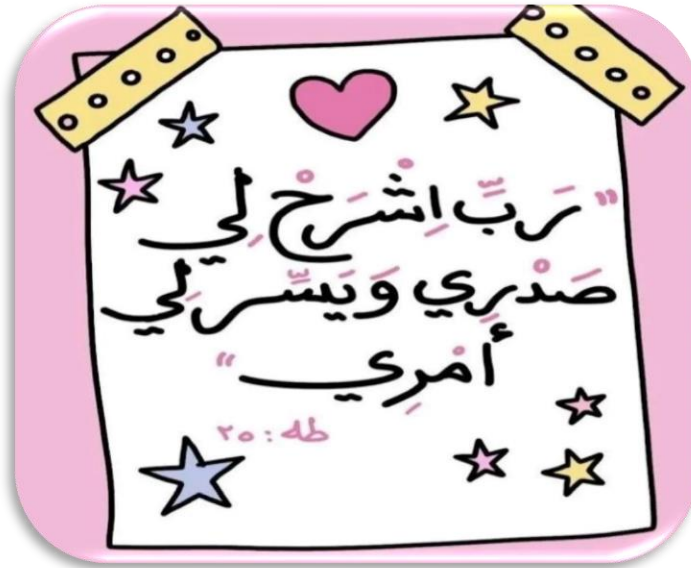 "رَبِّ اِشْرَحْ لِي
صَدْرِي وَيَسِّر لِي
أَمْرِي"
طه : ٢٥